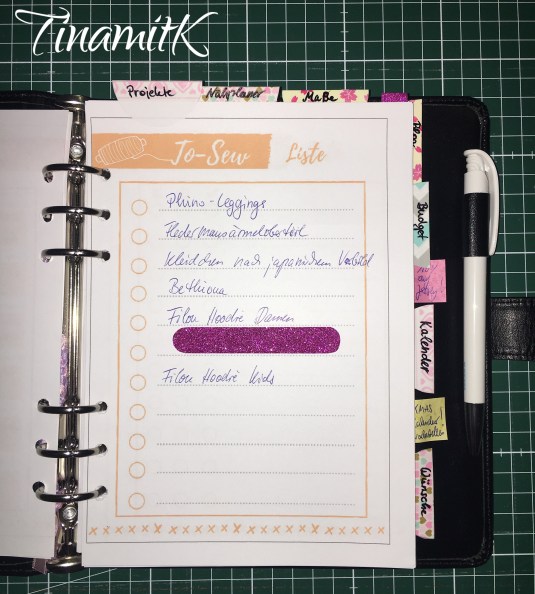 TinamitK
Projekte
Nähplaner
Maße
To-Sew Liste
Rhino-Leggings
Fledermausärmeloberteil
Kleidchen nach japanischem Vorbild
Bethiona
Filou Hoodie Damen
Filou Hoodie Kids
Budget
Kalender
XMAS
Kalender!
Wünsche